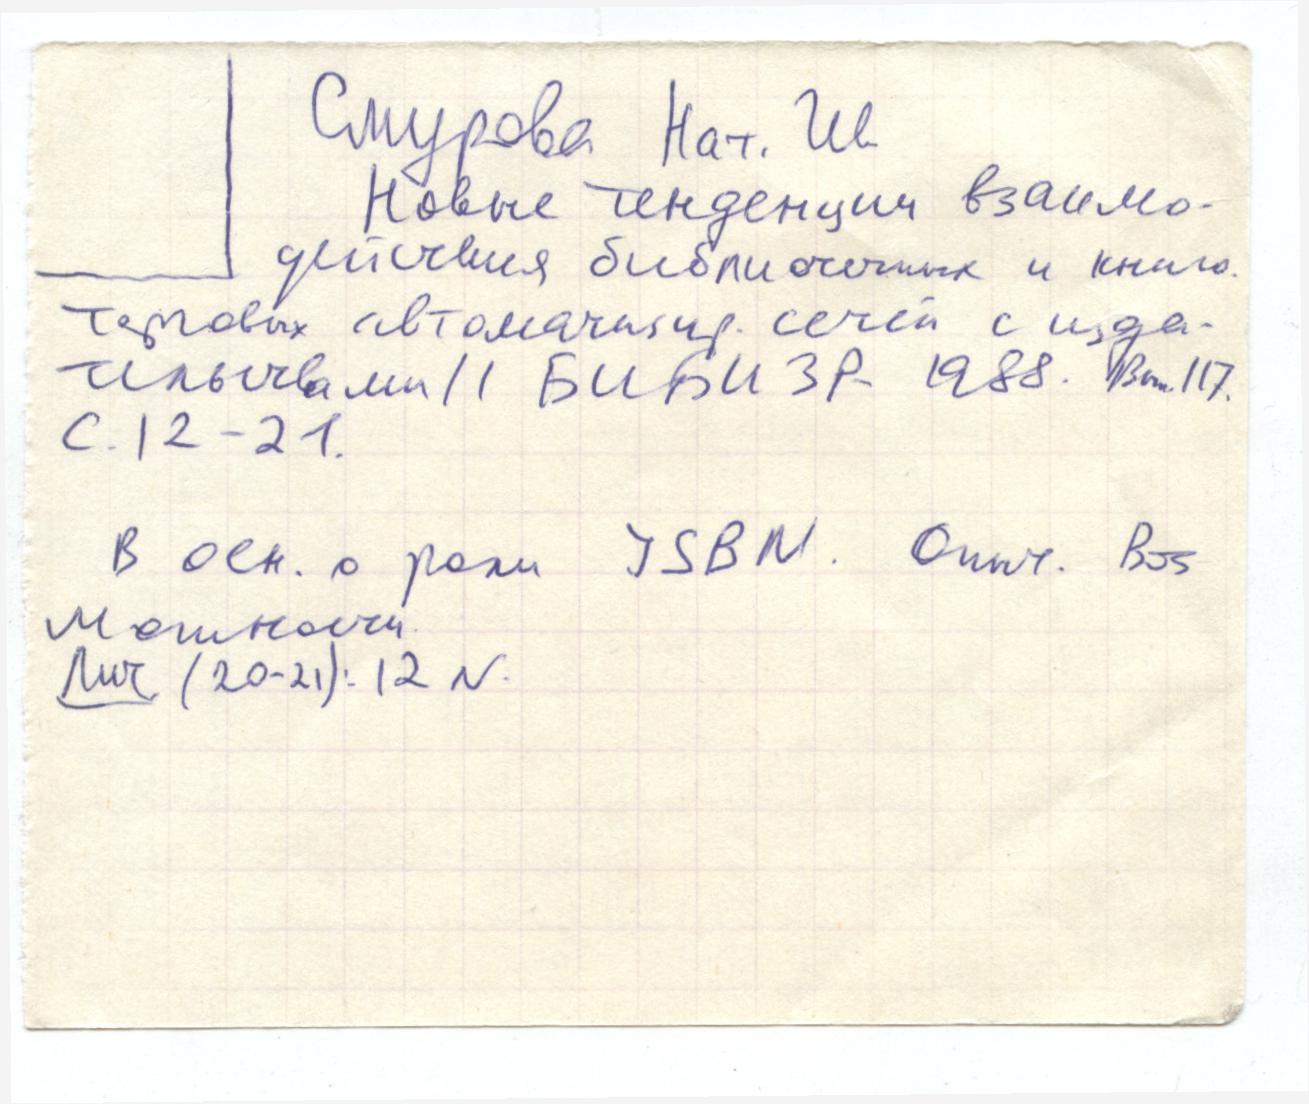 Смурова Нат. Ив
Новые тенденции взаимо-
действия библиотечных и книго-
торговых автоматизир. сетей с изда-
тельствами // БИБИЗР 1988. Вып. 117.
С. 12-21.
В осн. о роли ISBN. Опыт. Воз
можности.
Лит (20-21): 12 N.